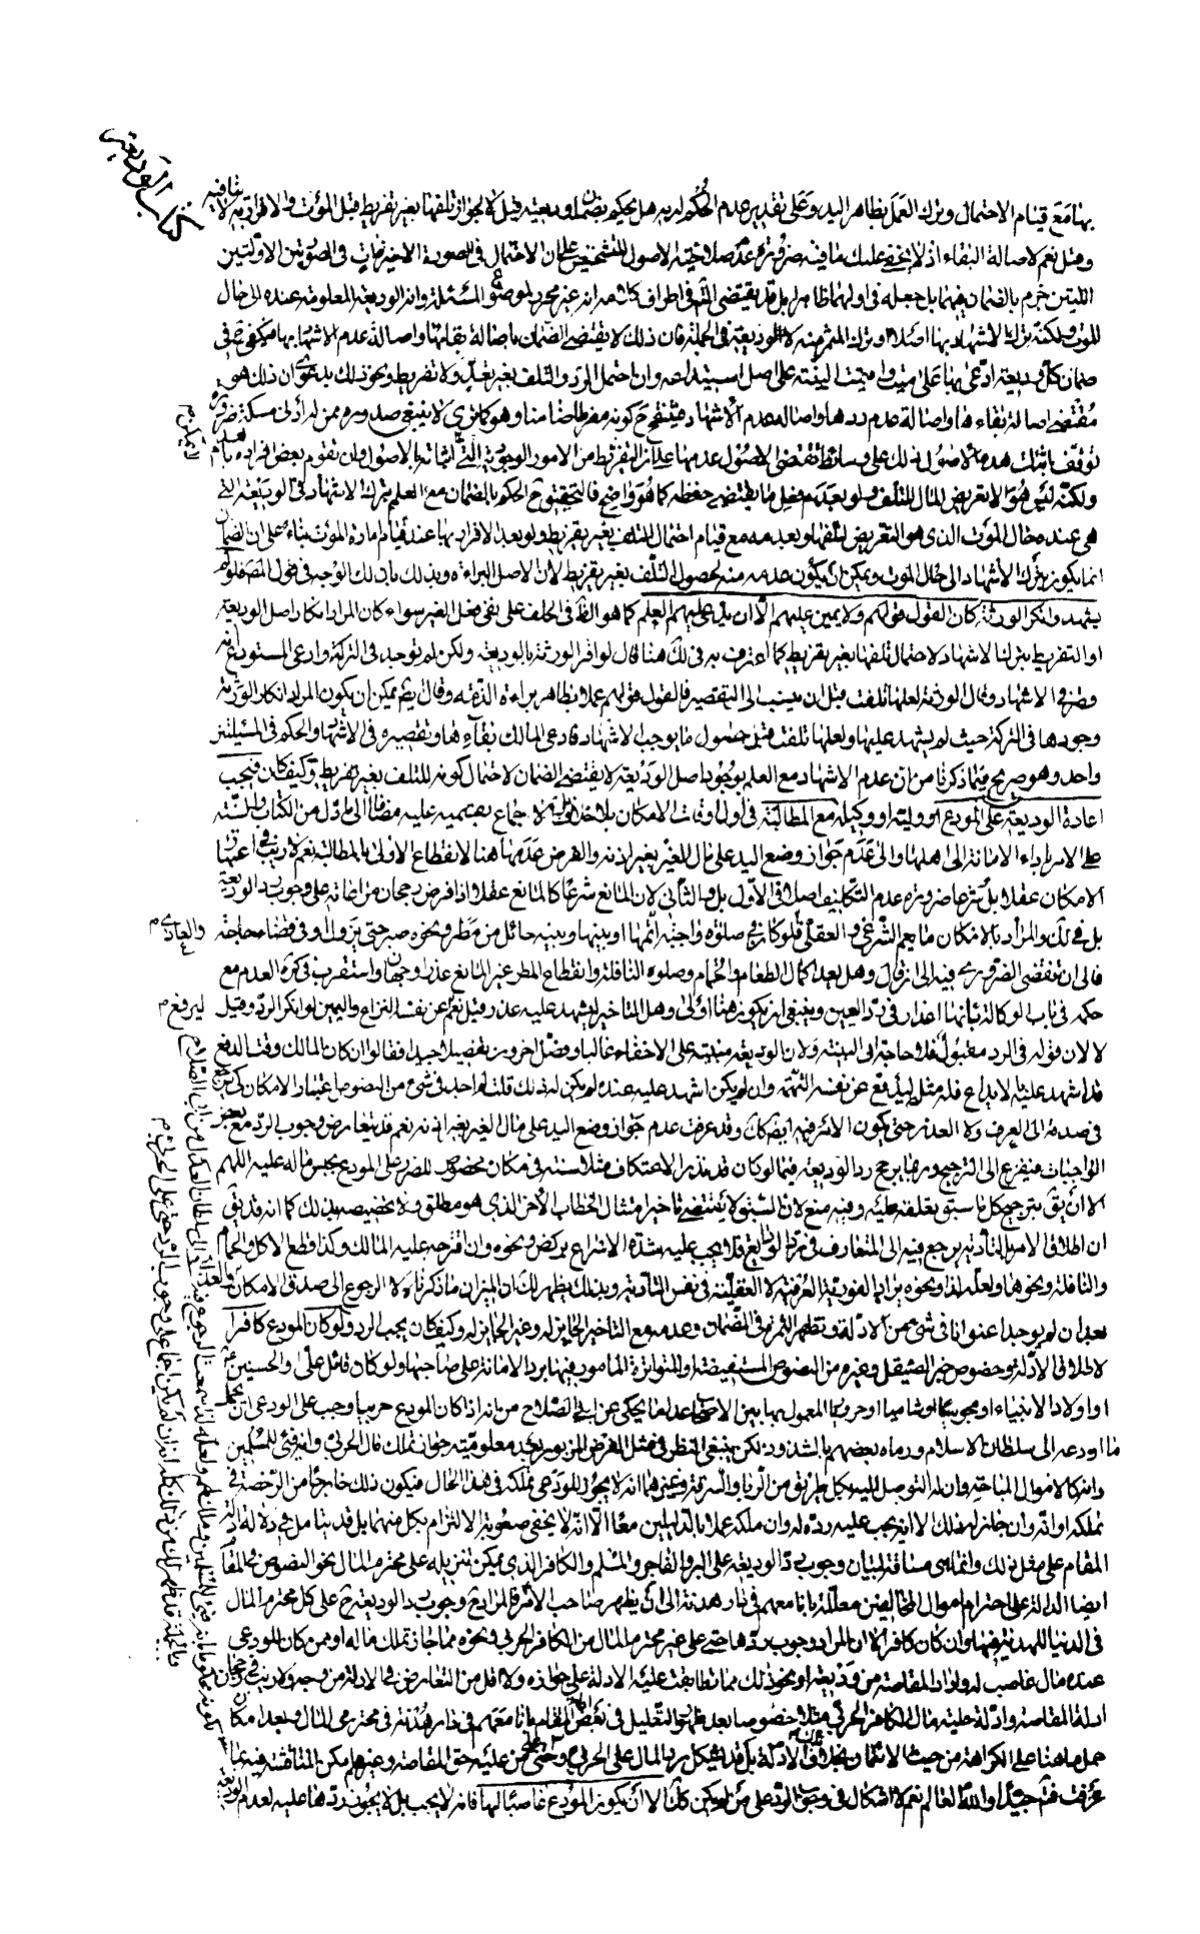 كتاب الوديعة
بها مع قيام الاحتمال وترك العمل بظاهر اليد وعلى تقدير عدم الحكم لربه هل يحكم بضمان وديعته قيل لا لجواز تلفها بغير تفريط قبل الموت والاقرار به لا ينافيه
وقيل نعم لاصالة البقاء اذ لا يخفى عليك ما فيه ضرورة عدم صلاحية الاصول للتشخيص على ان الاحتمال في الصورة الاخيرة آت في الصورتين الاولتين
اللتين جزم بالضمان فيهما بل جعله في اولهما ظاهرا بل قد يقتضي التأمل في اطراف كلامه انه غير محرر لموضوع المسئلة وانه الوديعة المعلومة عنده الى حال
الموت ولكنه ترك الاشهاد بها
ضمان كل وديعة ادعى بها على ميت واقيمت البينة على اصل استيداعه وان احتمل الرد والتلف بغير تعد ولا تفريط ونحو ذلك بدعوى ان ذلك هو
مقتضى اصالة بقاءها واصالة عدم ردها واصالة عدم الاشهاد فينقح ح كونه مفرطا ضامنا وهو كما ترى لا ينبغي صدوره ممن له ادنى مسكة ضرورة
توقف اثبات هذه الاصول لذلك على وسائط تقتضي الاصول عدمها
ولكنه ليس هو الا تعريض المال للتلف ولو بعدم فعل ما يقتضي حفظه كما هو واضح فالتحقيق ح الحكم بالضمان مع العلم بترك الاشهاد في الوديعة التي
هي عنده حال الموت الذي هو التعريض لتلفها وبعدمه مع قيام احتمال التلف بغير تفريط ولو بعد الاقرار بها عند قيام مادة الموت بناء على ان الضمان
انما يكون بترك الاشهاد الى حال الموت ويمكن ان يكون عدمه منه لحصول التلف بغير تفريط لان الاصل البراءة وبذلك بان لك الوجه في قول المصنف ولو لم
يشهد وانكر الورثة كان القول قولهم ولا يمين عليهم الا ان يدعى عليهم العلم كما هو الظ في الحلف على نفي فعل الغير سواء كان المراد انكار اصل الوديعة
او التفريط بترك الاشهاد لاحتمال تلفها بغير تفريط كما اعترف به في لك هنا قال لو اقر الورثة بالوديعة ولكن لم توجد في التركة وادعى المستودع انه
قصر في الاشهاد وقال الورثة لعلها تلفت قبل ان ينسب الى التقصير فالقول قولهم عملا بظاهر براءة الذمة وقال ايضا يمكن ان يكون المراد انكار الورثة
وجودها في التركة حيث لم يشهد عليها ولعلها تلفت قبل حصول ما يوجب الاشهاد فادعى المالك بقاءها وتقصيره في الاشهاد والحكم في المسئلتين
واحد وهو صريح فيما ذكرنا من ان عدم الاشهاد مع العلم بوجود اصل الوديعة لا يقتضي الضمان لاحتمال كونه للتلف بغير تفريط وكيف كان فتجب
اعادة الوديعة على المودع او وليه او وكيله مع المطالبة في اول اوقات الامكان بلا خلاف بل الاجماع بقسميه عليه مضافا الى ما دل من الكتاب والسنة
على الامر باداء الامانة الى اهلها والى عدم جواز وضع اليد على مال الغير بغير اذنه والفرض عدمها هنا لانقطاع الاولى بالمطالبة نعم لا ريب في اعتبار
الامكان عقلا بل شرعا ضرورة عدم التكليف اصلا في الاول بل والثاني لان المانع شرعا كالمانع عقلا واذا فرض رجحان مراعاته على وجوب رد الوديعة
بل في لك والمراد بالامكان ما يعم الشرعي والعقلي فلو كان في صلوة واجبة اتمها او بينها وبينه حائل من مطر ونحوه صبر حتى يزول او في قضاء حاجة
فالى ان تنقضي الضروري فيه الى ان قال وهل يعد اكمال الطعام والحمام وصلوة النافلة وانقطاع المطر غير المانع عذرا وجهان واستقرب في كره العدم مع
حكمه في باب الوكالة بانها اعذار في رد العين وينبغي ان يكون هنا اولى وهل التأخير ليشهد عليه عذر قيل نعم عن نفسه النزاع واليمين لو انكر الرد وقيل
لا لان قوله في الرد مقبول فلا حاجة الى البينة ولان الوديعة مبنية على الاخفاء غالبا وفصل اخرون تفصيلا جيدا فقالوا ان كان المالك وقت الدفع
قد اشهد عليه بالايداع فله مثله ليدفع عن نفسه التهمة وان لم يكن اشهد عليه عنده لم يكن له ذلك قلت
في صدقه الى العرف ولا العذر حتى يكون الامر فيه ايضا كك وقد عرفت عدم جواز وضع اليد على مال الغير بغير اذنه نعم قد يتعارض وجوب الرد مع بعض
الواجبات فيفزع الى الترجيح وربما يرجح رد الوديعة فيما لو كان قد نذر الاعتكاف مثلا سنة في مكان مخصوص للضرر على المودع بحبس ماله عليه اللهم
الا ان يق بترجيح كل ما سبق تعلقه عليه وفيه منع لان السبق لا يقتضي تأخير امتثال الخطاب الاخر الذي هو مطلق ولا تخصيصه بذلك كما انه قد يق
ان اطلاق الامر بالتأدية يرجع فيه الى المتعارف في رد الودايع فلا يجب عليه شدة الاسراع بركض ونحوه وان اقترحه عليه المالك وكذا قطع الاكل والحمام
والنافلة ونحوها ولعله لذا ونحوه يراد الفورية العرفية لا العقلية في نفس التأدية وبذلك يظهر لك ان الميزان ما ذكرناه لا الرجوع الى صدق الامكان
بعد ان لم يوجدا عنوانا في شيء من الادلة وتظهر الثمرة في الضمان وعدمه مع التأخير الجايز له وغير الجايز له وكيف كان يجب الرد ولو كان المودع كافرا
لاطلاق الادلة وخصوص خبر الصيقل وغيره من النصوص المستفيضة او المتواترة المأمور فيها برد الامانة على صاحبها ولو كان قاتل علي والحسين
او اولاد الانبياء او مجوسيا او شاميا او حروريا المعمول بها بين الاصحاب عدا ما يحكى عن ابي الصلاح من انه اذا كان المودع حربيا وجب على المودع ان يحمل
ما اودعه الى سلطان الاسلام ورماه بعضهم بالشذوذ لكن ينبغي النظر في مثل الفرض المزبور بعد معلومية جواز تملك مال الحربي وانه فيء للمسلمين
وانه كالاموال المباحة وان له التوصل اليه بكل طريق من الربا والسرقة وغيرهما انه لا يجوز للودعي تملكه في هذا الحال فيكون ذلك خارجا من الرخصة في
تملكه او انه وان جاز له ذلك الا انه يجب عليه رده له وان ملكه عملا بالدليلين معا الا انه لا يخفى صعوبة الالتزام بكل منهما بل قد يتأمل في دلالة ادلة
المقام على مثل ذلك وانما هي مساقة لبيان وجوب رد الوديعة على البر والفاجر والمسلم والكافر الذي يمكن تنزيله على محترم المال نحو النصوص في المقام
ايضا الدالة على احترام اموال المخالفين معللة بانا معهم في دار هدنة الى ان يظهر صاحب الامر فالمراد ح وجوب رد الوديعة ح على كل محترم المال
في الدنيا للهدنة فيها وان كان كافرا لا ان المراد وجوب ردها حتى على غير محترم المال من الكافر الحربي ونحوه مما جاز تملك ماله او ممن كان للودعي
عنده مال غاصب له واراد المقاصة من وديعته او نحو ذلك مما تطابقت عليه الادلة على جوازه ولا اقل من التعارض في الادلة من وجه ولا ريب في رجحان
ادلة المقاصة وادلة حلية مال الكافر الحربي مثلا خصوصا بعد ظهور التعليل في بعض اخبار المقام بانا معهم في دار هدنة في محترمي المال وبعد امكان
حمل ما هنا على الكراهة من حيث الائتمان بخلاف الادلة بل قد يشكل رد المال على الحربي وحتى من عليه حق المقاصة وغيرهم لكن المناقشة فيه بما
عرفت فتأمل جيدا والله العالم نعم لا اشكال في وجوب الرد على من لم يكن كك الا ان يكون المودع غاصبا لها فانه لا يجب بل لا يجوز ردها عليه لعدم الوديعة